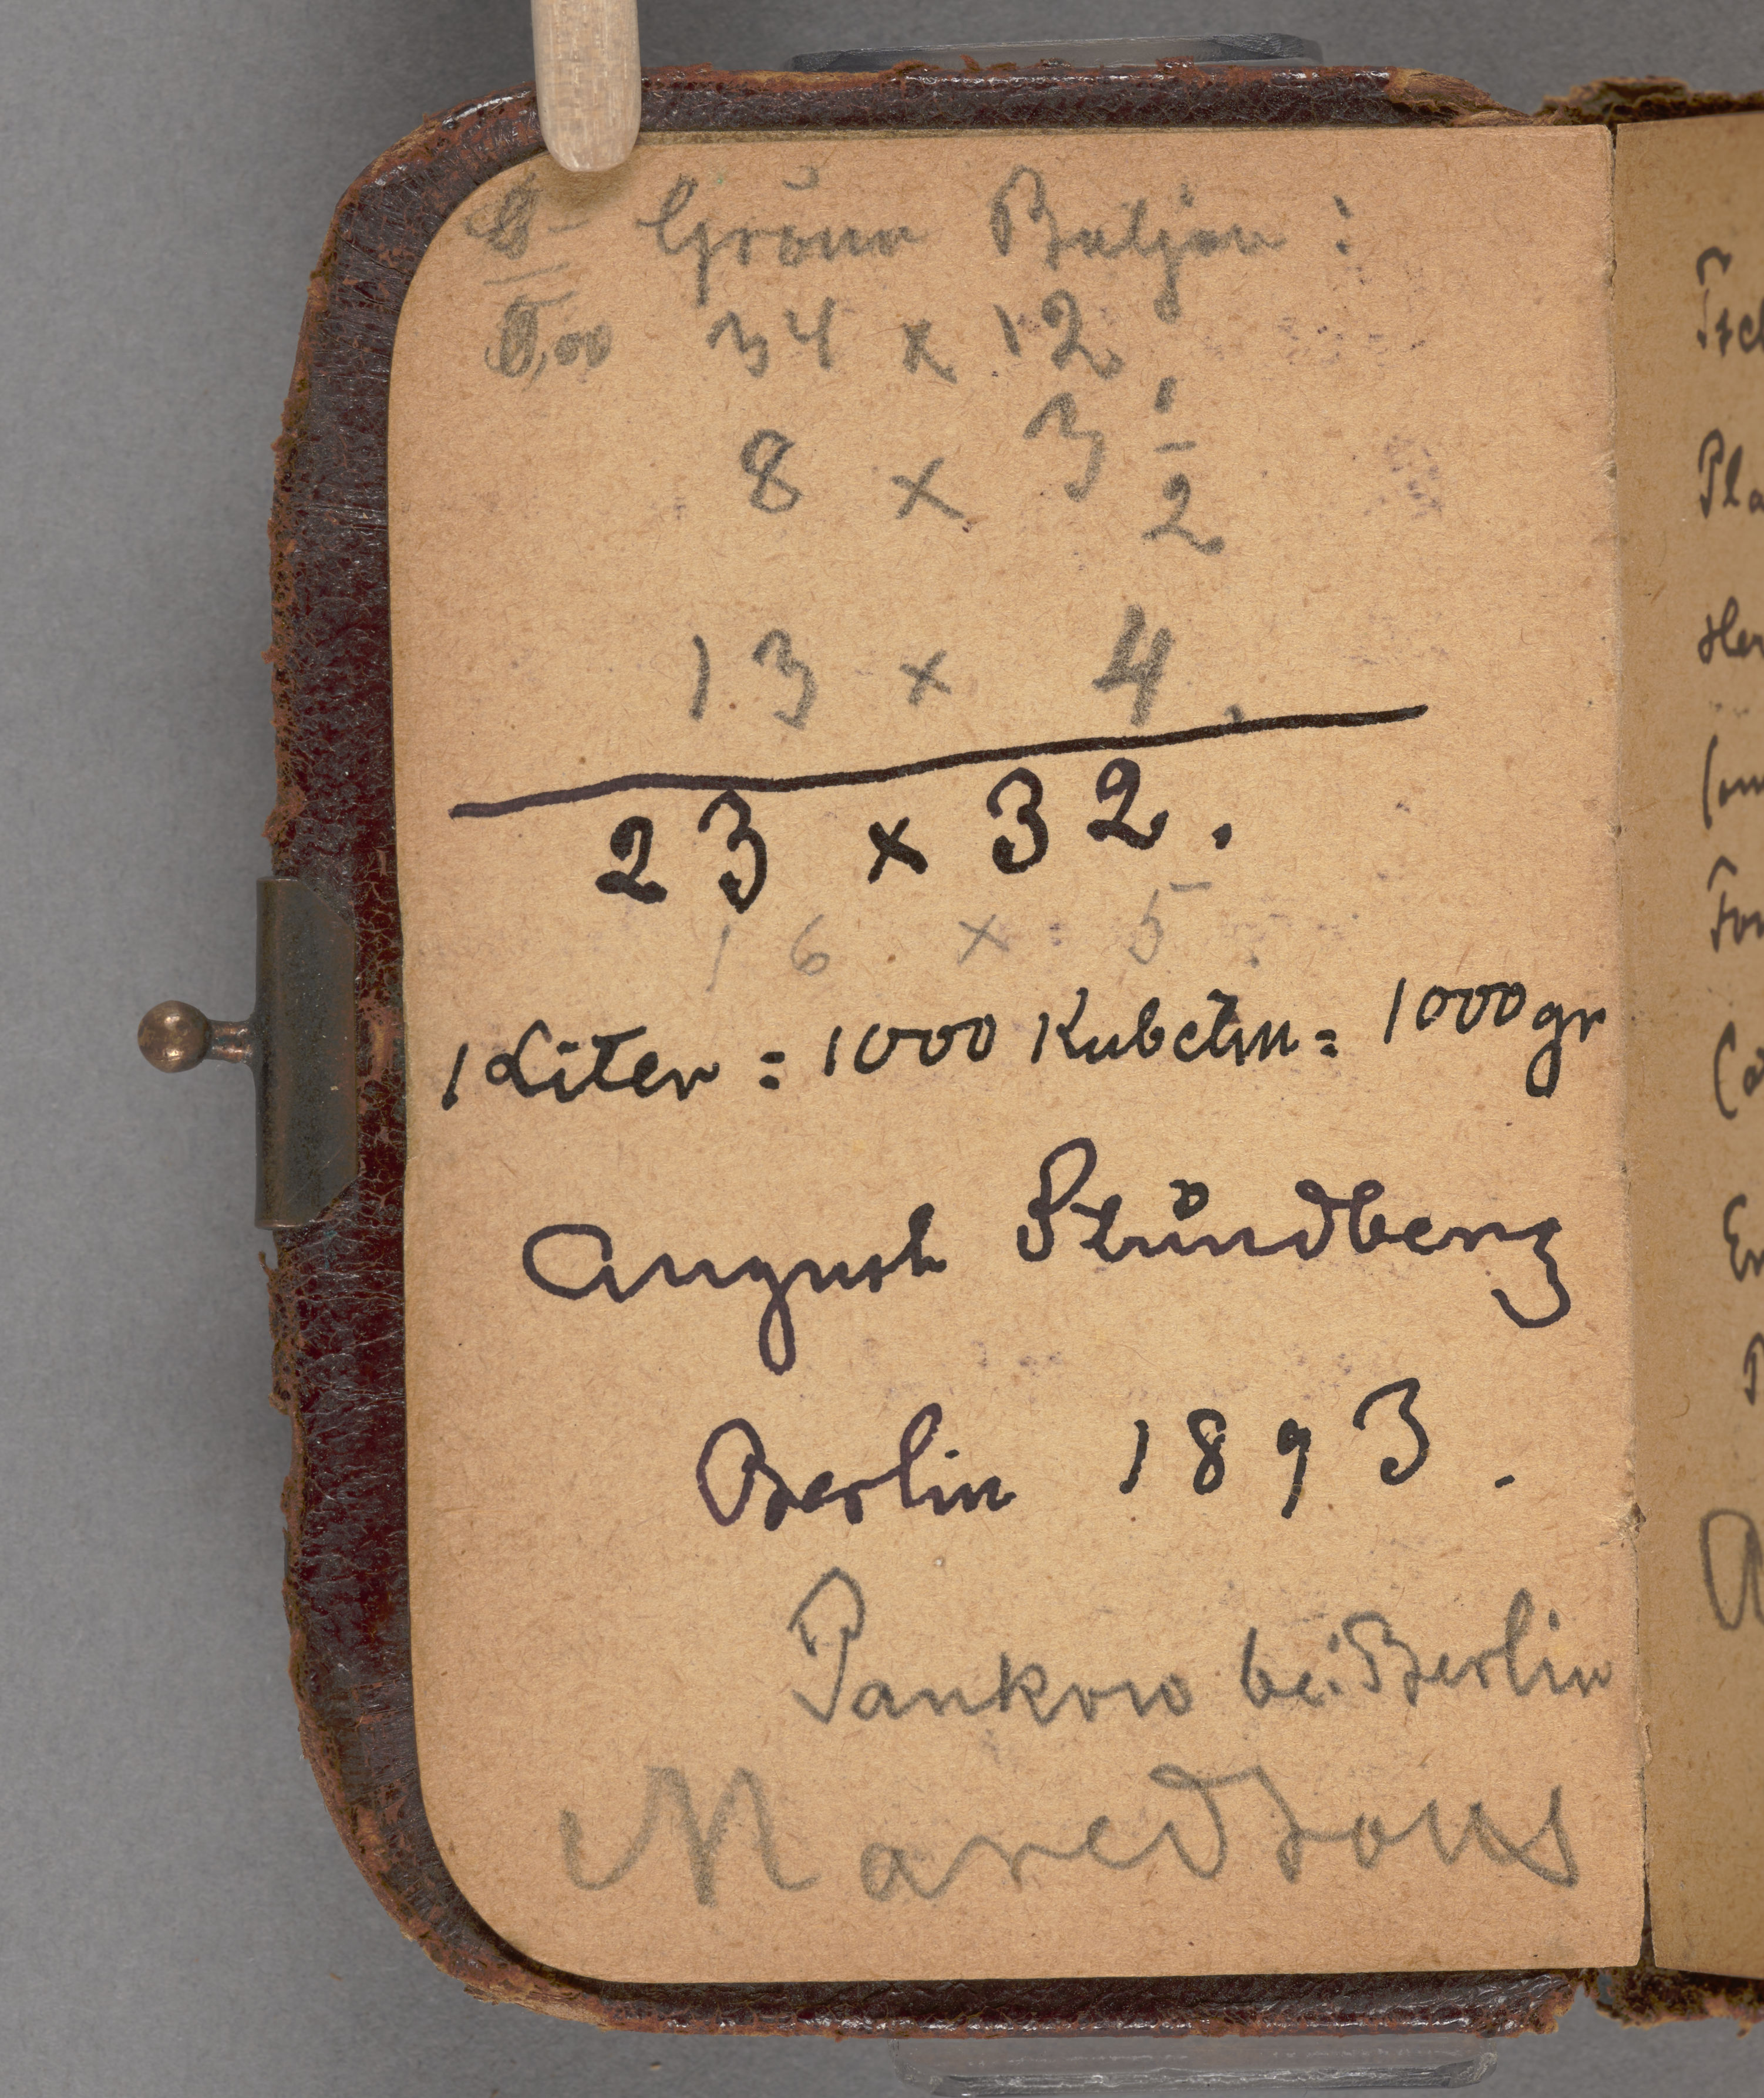 Gröna Baljan:
34 x 12.
8 x 3 1/2
13 x 4.
23 x 32.
16 x 5.
1 Liter = 1000 Kubctm = 1000 gr
August Strindberg
Berlin 1893.
Pankow bei Berlin
Maredsous